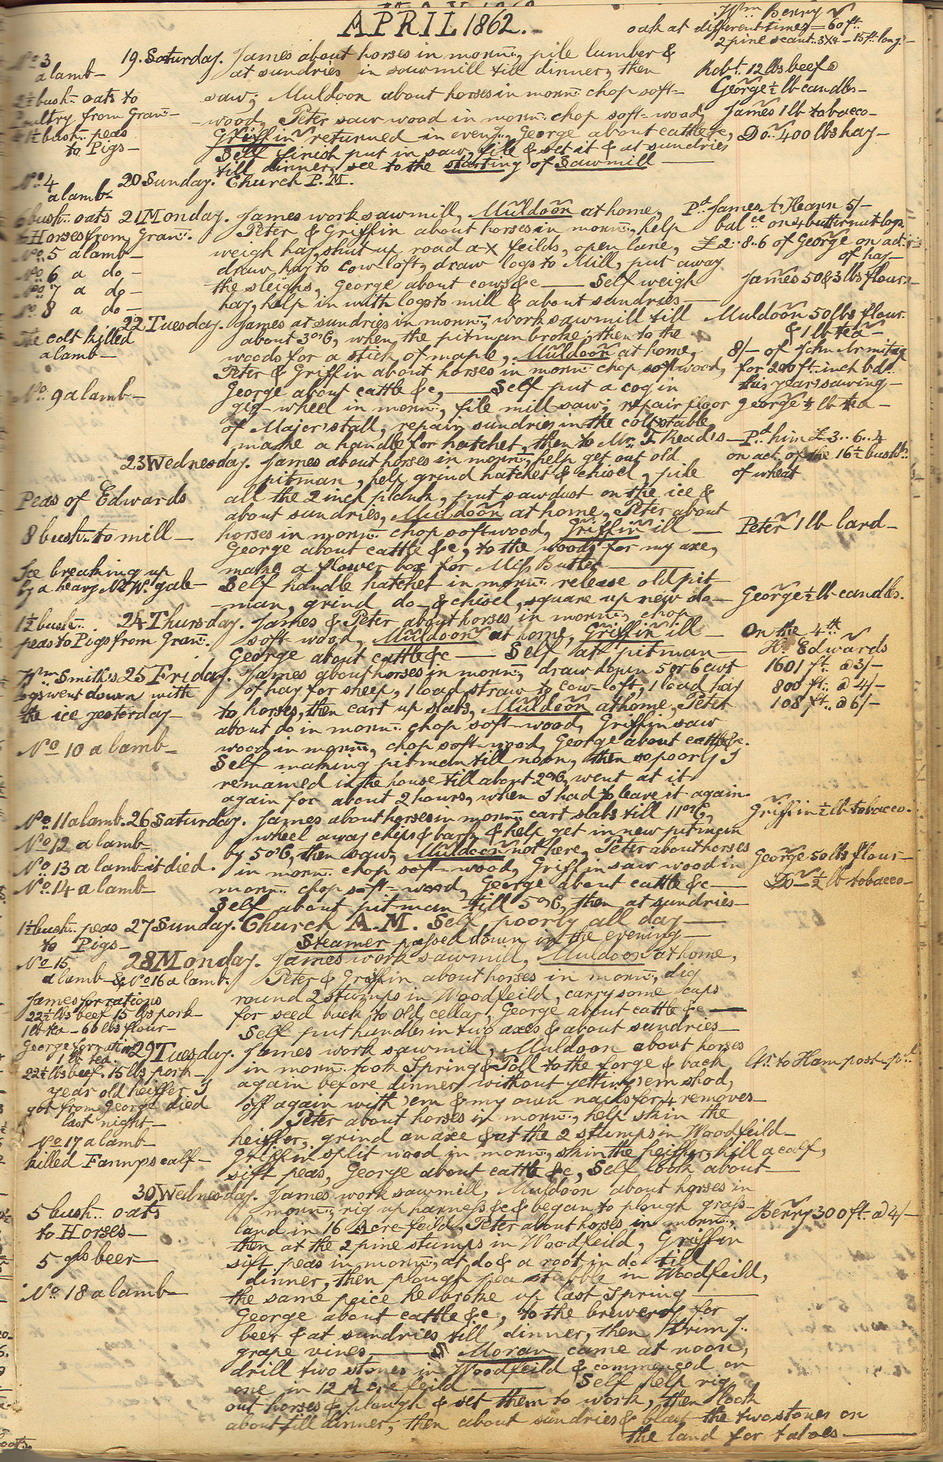 APRIL 1862.
Wm Berry
oak at different times = 60 ft.
2 pine scant. 3x4 - 15 ft long.
No 3
a lamb -
2½ bush. oats to
Poultry from Gran -
1½ bush. peas
to Pigs -
19. Saturday. James about horses in morn., pile lumber &
at sundries in sawmill till dinner, then
saw, Muldoon about horses in morn. chop soft-
wood, Peter saw wood in morn. chop soft-wood,
Griffin returned in eveng., George about cattle &c,
Self finish put in saw, file & set it & at sundries
till dinner, see to the starting of Sawmill
Robt. 12 lbs beef
George ½ lb candles -
James 1 lb tobacco -
Do - 400 lbs hay -
No 4
a lamb -
20 Sunday. Church P.M.
6 bush. oats
to Horses from Gran.
No. 5 a lamb -
No. 6 a do -
No. 7 a do -
No. 8 a do -
21 Monday. James work sawmill, Muldoon at home,
Peter & Griffin about horses in morn., help
weigh hay, shut up road a-x feilds, open lane,
draw hay to cow-loft, draw logs to Mill, put away
the sleighs, George about cows &c - Self weigh
hay, help in with logs to mill & about sundries -
Pd. James to Hearn 5/-
balce on 4 butternut logs
£2..8..6 of George on act
of hay -
James 50 & 3 lbs flour -
The colt killed
a lamb -
No. 9 a lamb -
22 Tuesday. James at sundries in morn., work sawmill till
about 3 o'C, when the pitman broke, then to the
woods for a stick of maple, Muldoon at home,
Peter & Griffin about horses in morn. chop softwood,
George about cattle &c, - Self put a cog in
gig-wheel in morn., file mill saw, repair floor
of Major's stall, repair sundries in the colt stable,
make a handle for hatchet, then to Mr. T. Heades -
Muldoon 50 lbs flour
& 1 lb tea -
8/- of John Armitage
for 200 ft. inch bds.
this years sawing -
George ½ lb tea -
Pd. him £3..6..4
on act. of the 16½ bushls.
of wheat
Peas of Edwards
8 bush. to mill -
Ice breaking up
by a heavy N.W. gale -
23 Wednesday. James about horses in morn., help get out old
pitman, help grind hatchet & chisel, pile
all the 2 inch plank, put sawdust on the ice &
about sundries, Muldoon at home, Peter about
horses in morn. chop softwood, Griffin ill -
George about cattle &c, to the woods for my axe,
make a flower box for Miss Butter
Self handle hatchet in morn. release old pit-
man, grind do & chisel, square up new do -
Peter 1 lb lard -
George ½ lb candls.
1½ bush.
peas to Pigs from Gran.
24 Thursday. James & Peter about horses in morn., chop
soft-wood, Muldoon at home, Griffin ill -
George about cattle &c - Self at pitman -
On the 4th
H. Edwards
1601 ft. @ 3/-
800 ft. @ 4/-
108 ft. @ 6/-
Wm Smith's
logs went down with
the ice yesterday -
No 10 a lamb -
25 Friday. James about horses in morn., draw down 5 or 6 cwt
of hay for sheep, 1 load straw to cow-loft, 1 load hay
to horses, then cart up slabs, Muldoon at home, Peter
about do in morn. chop soft-wood, Griffin saw
wood in morn., chop soft-wood, George about cattle &c.
Self making pitman till noon, then so poorly I
remained in the house till about 2 o'C, went at it
again for about 2 hours, when I had to leave it again -
No. 11 a lamb.
No 12 a lamb -
No. 13 a lamb it died.
No. 14 a lamb -
26 Saturday. James about horses in morn. cart slabs till 11 o'C,
wheel away chips & bark & help get in new pitman
by 5 o'C, then saw, Muldoon not here, Peter about horses
in morn. chop soft-wood, Griffin saw wood in
morn. chop soft-wood, George about cattle &c -
Self about pitman till 5 o'C, then at sundries -
Griffin ½ lb tobacco -
George 50 lbs flour -
Do - ½ lb tobacco -
1½ bush. peas
to Pigs -
27 Sunday. Church A.M. Self poorly all day -
Steamer passed down in the evening -
No 15
a lamb & No 16 a lamb.
James for rations
22½ lbs beef 15 lbs pork -
1 lb tea - 66 lbs flour -
28 Monday. James work sawmill, Muldoon at home,
Peter & Griffin about horses in morn., dig
round 2 stumps in Woodfeild, carry some cups
for seed back to Old cellar, George about cattle &c -
Self put handles in two axes & about sundries -
George for rations
1 lb tea,
22½ lbs beef - 15 lbs pork -
year old heiffer I
got from George died
last night -
No 17 a lamb -
killed Fannys calf -
29 Tuesday. James work sawmill, Muldoon about horses
in morn. took Spring & Poll to the forge & back
again before dinner without getting 'em shod,
off again with 'em & my own nails for 4 removes -
Peter about horses in morn., help skin the
heiffer, grind an axe & at the 2 stumps in Woodfeild -
Griffin split wood in morn., skin the heiffer, kill a calf,
sift peas, George about cattle &c, Self look about
5 bush. oats
to Horses -
5 gls beer -
No. 18 a lamb -
30 Wednesday. James work sawmill, Muldoon about horses in
morn., rig up harness &c & began to plough grass-
land in 16 Acre feild, Peter about horses in morn.,
then at the 2 pine stumps in Woodfeild, Griffin
sift peas in morn., at do & a root in do till
dinner, then plough pea stubble in Woodfeild,
the same peice he broke up last Spring
George about cattle &c, to the brewery for
beer & at sundries till dinner, then trim
grape vines - S Moran came at noon,
drill two stones in Woodfeild & commenced on
one in 12 Acre feild - Self help rig
out horses & plough & set them to work, then look
about till dinner, then about sundries & blast the two stones on
the land for tatoes -
Berry 300 ft. @ 4/-